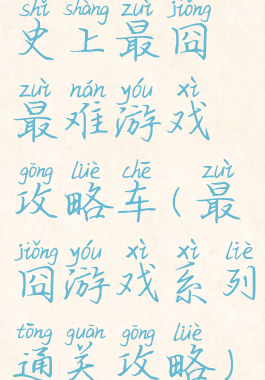 shǐ shàng zuì jiǒng
史上最囧
zuì nán yóu xì
最难游戏
gōng lüè chē zuì
攻略车(最
jiǒng yóu xì xì liè
囧游戏系列
tōng guān gōng lüè
通关攻略)